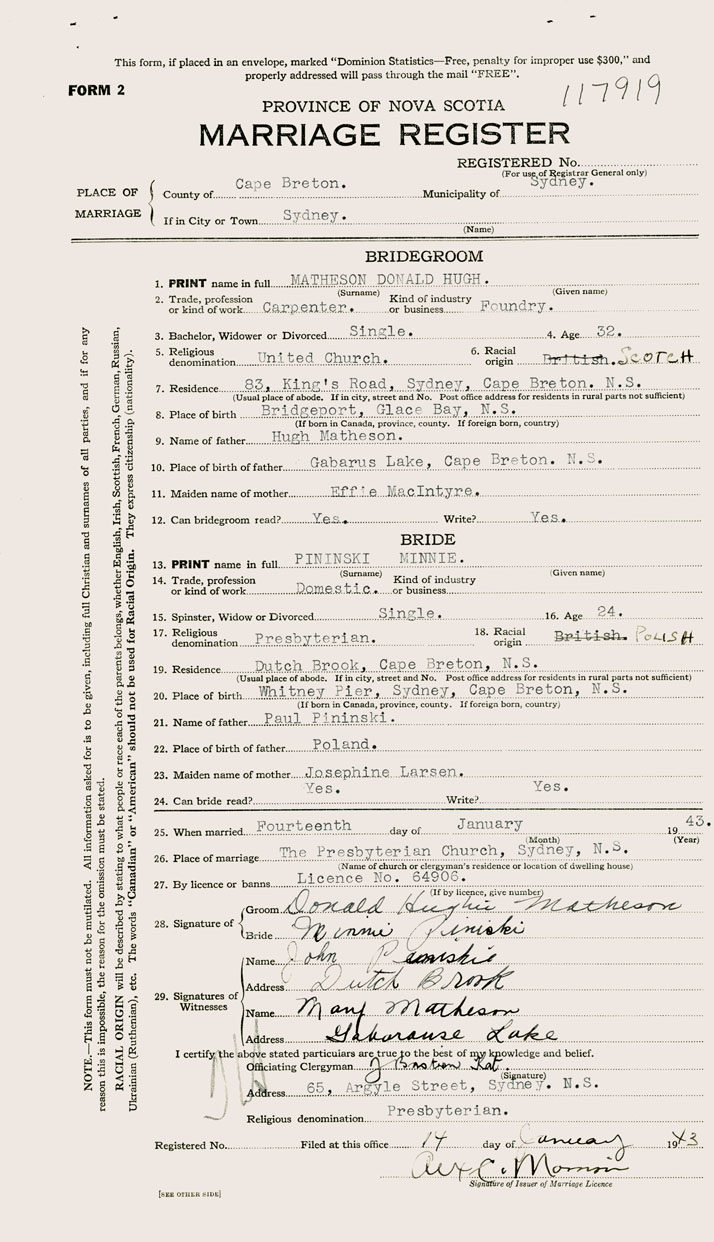 This form, if placed in an envelope, marked "Dominion Statistics—Free, penalty for improper use $300," and
properly addressed will pass through the mail "FREE".
FORM 2
117919
PROVINCE OF NOVA SCOTIA
MARRIAGE REGISTER
REGISTERED No.
(For use of Registrar General only)
PLACE OF MARRIAGE
County of Cape Breton. Municipality of Sydney.
If in City or Town Sydney.
(Name)
BRIDEGROOM
1. PRINT name in full MATHESON DONALD HUGH.
(Surname) (Given name)
2. Trade, profession or kind of work Carpenter. Kind of industry or business Foundry.
3. Bachelor, Widower or Divorced Single. 4. Age 32.
5. Religious denomination United Church. 6. Racial origin British. SCOTCH
7. Residence 83, King's Road, Sydney, Cape Breton. N.S.
(Usual place of abode. If in city, street and No. Post office address for residents in rural parts not sufficient)
8. Place of birth Bridgeport, Glace Bay, N.S.
(If born in Canada, province, county. If foreign born, country)
9. Name of father Hugh Matheson.
10. Place of birth of father Gabarus Lake, Cape Breton. N.S.
11. Maiden name of mother Effie MacIntyre.
12. Can bridegroom read? Yes. Write? Yes.
BRIDE
13. PRINT name in full PININSKI MINNIE.
(Surname) (Given name)
14. Trade, profession or kind of work Domestic. Kind of industry or business
15. Spinster, Widow or Divorced Single. 16. Age 24.
17. Religious denomination Presbyterian. 18. Racial origin British. POLISH
19. Residence Dutch Brook, Cape Breton, N.S.
(Usual place of abode. If in city, street and No. Post office address for residents in rural parts not sufficient)
20. Place of birth Whitney Pier, Sydney, Cape Breton, N.S.
(If born in Canada, province, county. If foreign born, country)
21. Name of father Paul Pininski.
22. Place of birth of father Poland.
23. Maiden name of mother Josephine Larsen.
24. Can bride read? Yes. Write? Yes.
25. When married Fourteenth day of January 1943.
(Month) (Year)
26. Place of marriage The Presbyterian Church, Sydney, N.S.
(Name of church or clergyman's residence or location of dwelling house)
27. By licence or banns Licence No. 64906.
(If by licence, give number)
28. Signature of
Groom Donald Hughie Matheson
Bride Minnie Piniski
29. Signatures of Witnesses
Name John Peniskie
Address Dutch Brook
Name Mary Matheson
Address Gabarouse Lake
I certify the above stated particulars are true to the best of my knowledge and belief.
Officiating Clergyman
(Signature)
Address 65, Argyle Street, Sydney. N.S.
Religious denomination Presbyterian.
Registered No. Filed at this office 14 day of January 1943
Alex C. Morrison
Signature of Issuer of Marriage Licence
[SEE OTHER SIDE]
NOTE.—This form must not be mutilated. All information asked for is to be given, including full Christian and surnames of all parties, and if for any
reason this is impossible, the reason for the omission must be stated.
RACIAL ORIGIN will be described by stating to what people or race each of the parents belongs, whether English, Irish, Scottish, French, German, Russian,
Ukrainian (Ruthenian), etc. The words "Canadian" or "American" should not be used for Racial Origin. They express citizenship (nationality).